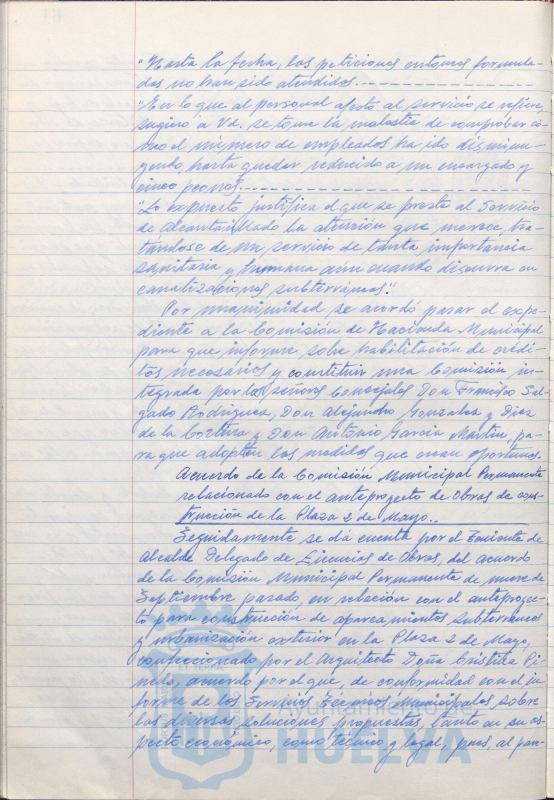 "Hasta la fecha, las peticiones entonces formula-
das no han sido atendidas.
"En lo que al personal afecto al servicio se refiere,
sugiero a Vd. se tome la molestia de comprobar có-
mo el número de empleados ha ido disminu-
yendo, hasta quedar reducido a un encargado y
cinco peones.
"Lo expuesto justifica el que se preste al Servicio
de Alcantarillado la atención que merece, tra-
tándose de un servicio de tanta importancia
sanitaria y humana aún cuando discurra en
canalizaciones subterráneas."
Por unanimidad se acordó pasar el expe-
diente a la Comisión de Hacienda Municipal
para que informe sobre habilitación de crédi-
tos necesarios y constituir una Comisión in-
tegrada por los señores Concejales Don Francisco Sal-
gado Rodríguez, Don Alejandro González y Diez
de la Cortina y Don Antonio García Martín, pa-
ra que adopten las medidas que crean oportunas.
Acuerdo de la Comisión Municipal Permanente
relacionado con el anteproyecto de Obras de cons-
trucción de la Plaza 2 de Mayo.
Seguidamente se dá cuenta por el Teniente de
Alcalde Delegado de Licencias de Obras, del acuerdo
de la Comisión Municipal Permanente de nueve de
Septiembre pasado, en relación con el anteproyec-
to para construcción de aparcamientos subterráneos
y urbanización exterior en la Plaza 2 de Mayo,
confeccionado por el Arquitecto Doña Cristina Pi-
neda, acuerdo por el que, de conformidad con el in-
forme de los Servicios Técnicos Municipales sobre
las diversas soluciones propuestas, tanto en su as-
pecto económico, como técnico y legal, pues al pare-
HUELVA